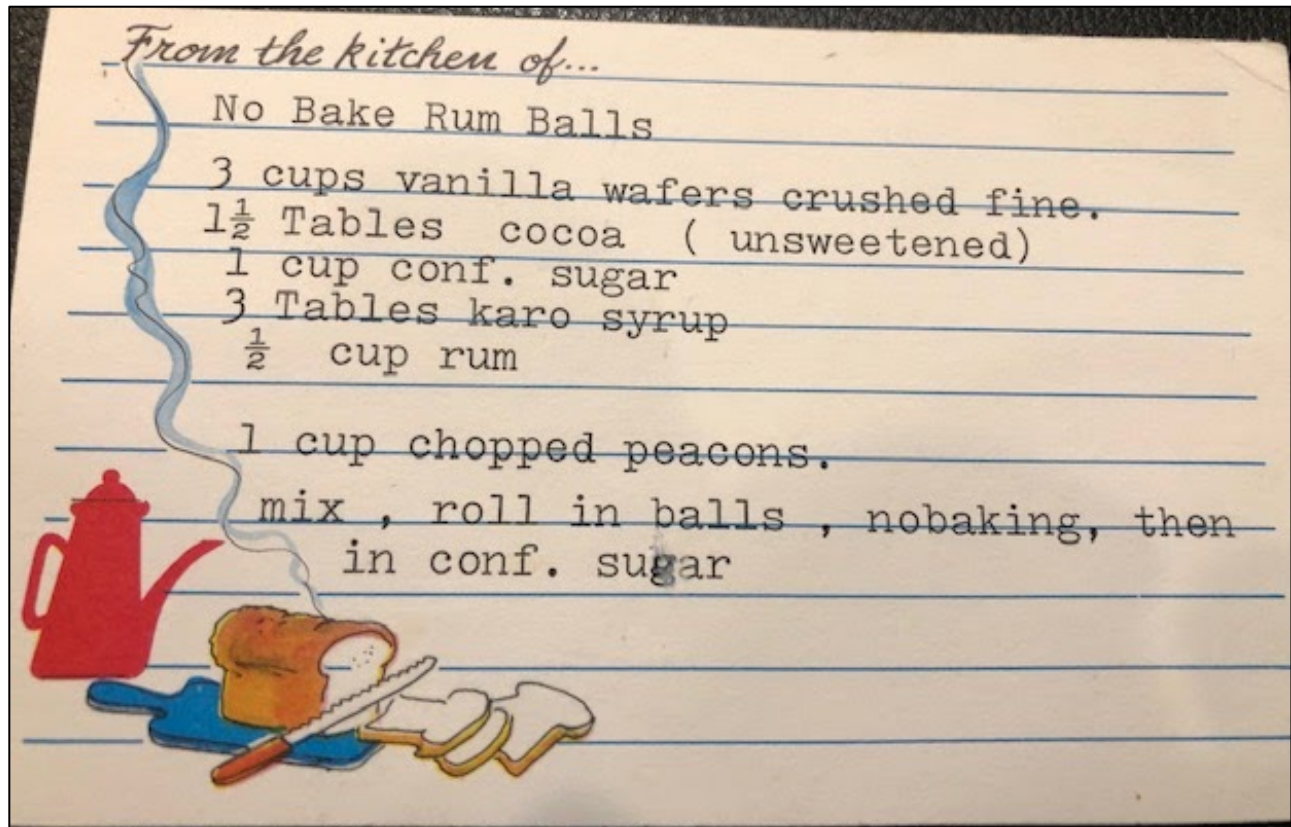 From the kitchen of...
No Bake Rum Balls
3 cups vanilla wafers crushed fine.
1½ Tables cocoa ( unsweetened)
1 cup conf. sugar
3 Tables karo syrup
½ cup rum
1 cup chopped peacons.
mix , roll in balls , nobaking, then
in conf. sugar